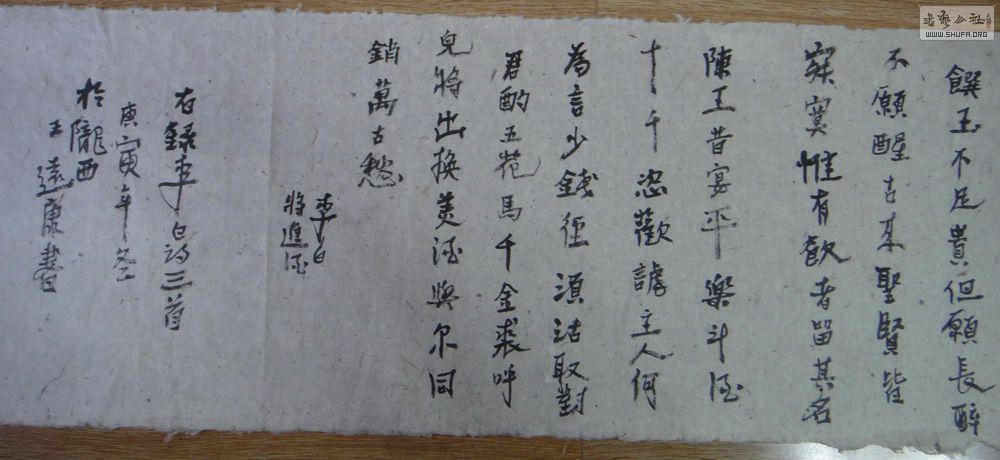 饌玉不足貴但願長醉
不願醒古來聖賢皆
寂寞惟有飲者留其名
陳王昔宴平樂斗酒
十千恣歡謔主人何
為言少錢徑須沽取對
君酌五花馬千金裘呼
兒將出換美酒與尔同
銷萬古愁
李白
將進酒
右錄李白詩三首
庚寅年冬
於隴西
王遠康書
WWW.SHUFA.ORG